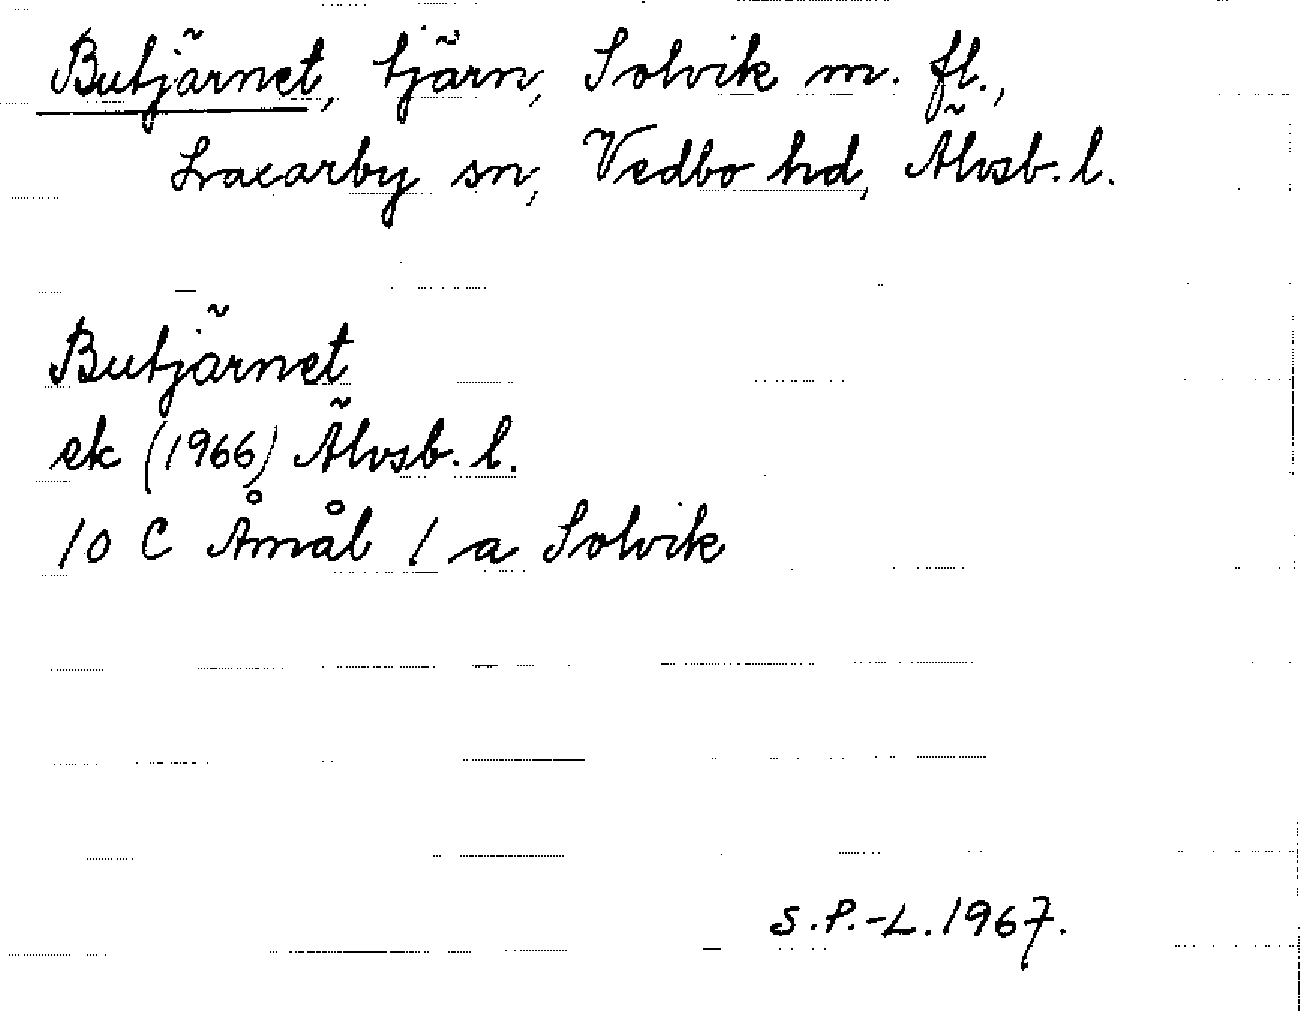 Butjärnet, tjärn, Solvik m. fl.,
Laxarby sn, Vedbo hd, Älvsb. l.
Butjärnet
ek (1966) Älvsb. l.
10 C Åmål 1 a Solvik
S.P.-L. 1967.